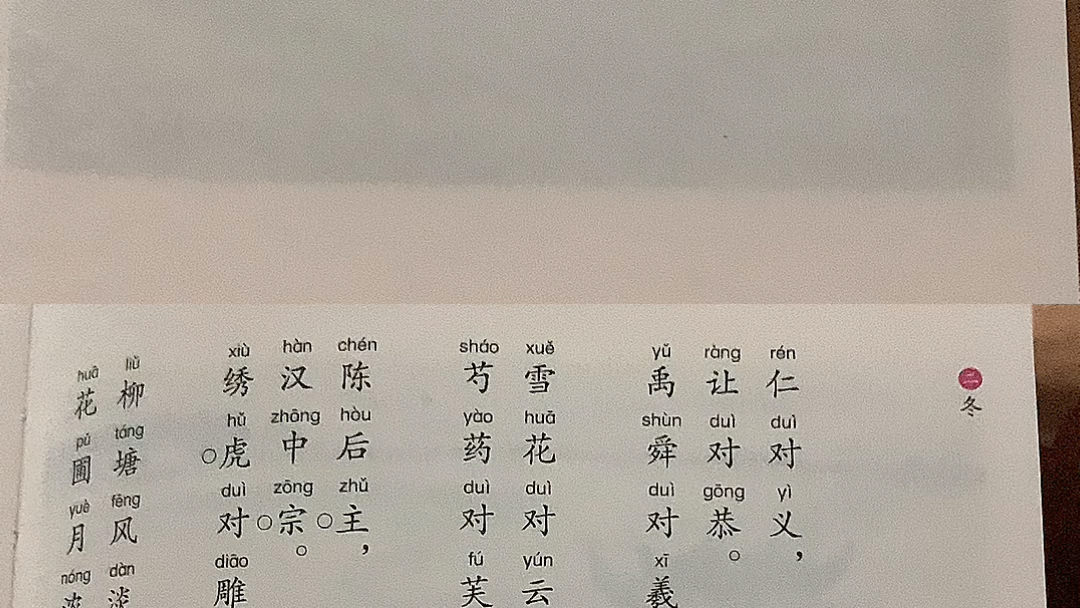 二 冬
rén duì yì
仁对义，
ràng duì gōng
让对恭。
yǔ shùn duì xī
禹舜对羲
xuě huā duì yún
雪花对云
sháo yào duì fú
芍药对芙
chén hòu zhǔ
陈后主，
hàn zhōng zōng
汉中宗。
xiù hǔ duì diāo
绣虎对雕
liǔ táng fēng dàn
柳塘风淡
huā pǔ yuè nóng
花圃月浓